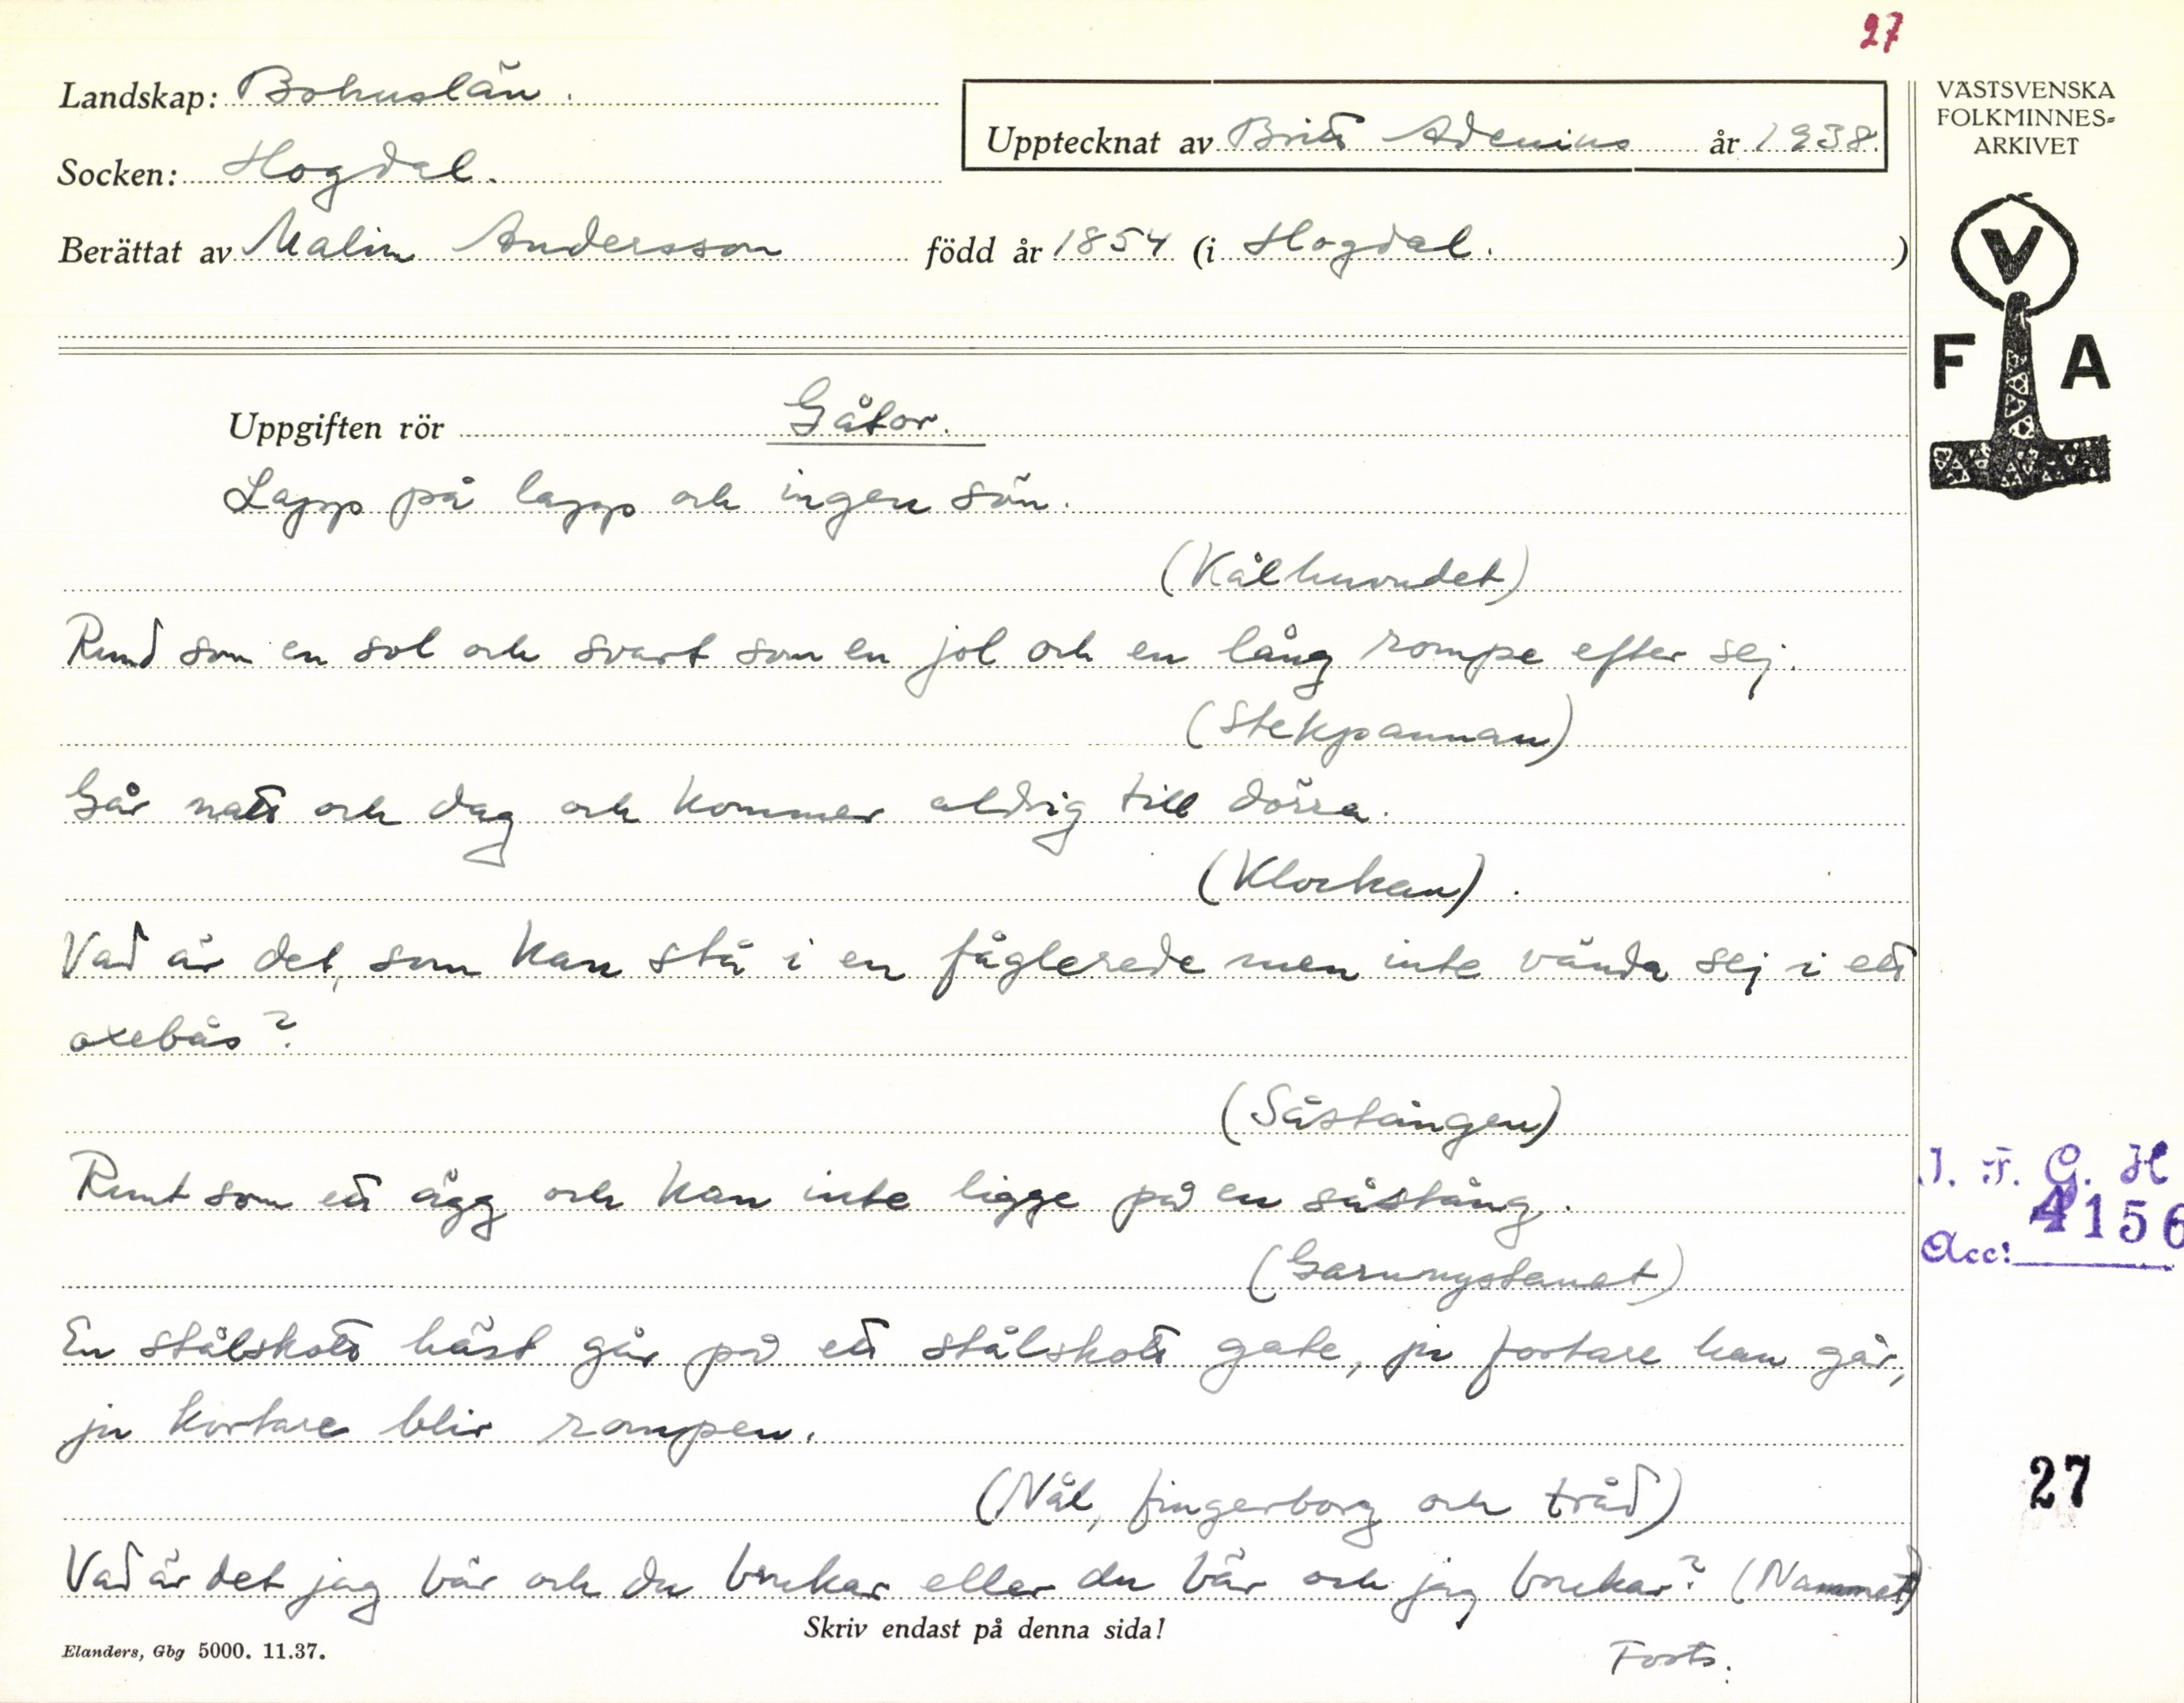 27
Landskap: Bohuslän.
Upptecknat av Britt Adenius år 1938.
Socken: Hogdal.
Berättat av Malin Andersson född år 1854 (i Hogdal.)
VÄSTSVENSKA
FOLKMINNES-
ARKIVET
V
F A
Uppgiften rör Gåtor.
Lapp på lapp och ingen söm.
(Kålhuvudet)
Rund som en sol och svart som en jol och en lång rompe efter sej.
(Stekpannan)
Går natt och dag och kommer aldrig till dörra.
(Klockan).
Vad är det, som kan stå i en fåglerede men inte vända sej i ett
oxebås?
(Såstången)
Runt som ett ägg och kan inte ligge på en såstång.
(Garnnystanet)
En stålskott häst går på ett stålskott gate, ju fortare han går,
ju kortare blir rompen.
(Nål, fingerborg och tråd)
Vad är det jag bär och du brukar eller du bär och jag brukar? (Nammet)
Skriv endast på denna sida!
Elanders, Gbg 5000. 11.37.
Forts.
I. F. G. H
4156
Acc:
27